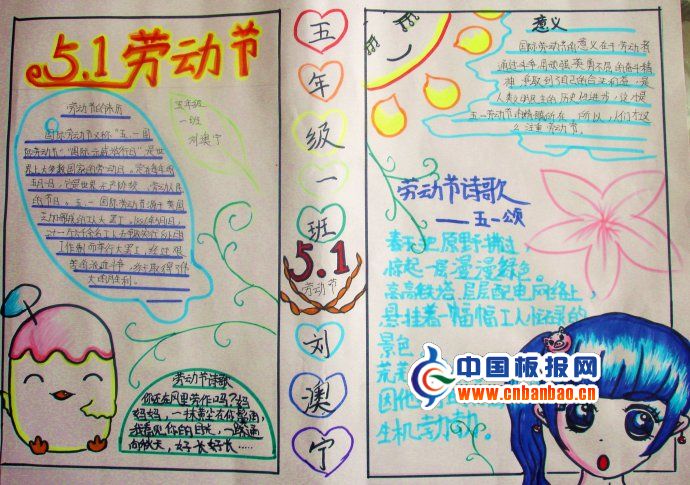 5.1劳动节
劳动节的来历
五年级
一班
刘澳宁
国际劳动节又称"五一国
际劳动节""国际示威游行日"是世
界上大多数国家的劳动节。定在每年的
五月一日。它是世界无产阶级、劳动人民
的节日。五一国际劳动节源于美国
芝加哥城的工人大罢工。1886年5月1日,
工作制而举行大罢工,经过艰
大的胜利。
劳动节诗歌
你还在风里劳作吗?妈
妈妈,
向秋天,好长好长……
五
年
级
一
班
5.1
劳动节
刘
澳
宁
意义
国际劳动节的意义在于劳动者
通过斗争,用顽强、英勇不屈的奋斗精
神,争取到了自己的合法权益,是
人类文明民主的历史性进步,这才是
五一劳动节的精髓所在。所以,人们才这
么注重劳动节。
劳动节诗歌
——五一颂
春天把原野拂过,
掠起一层漫漫绿色
高高铁塔,层层配电网络上,
悬挂着一幅幅工人忙碌的
景色
荒
因他
生机
中国板报网
www.cnbanbao.cn